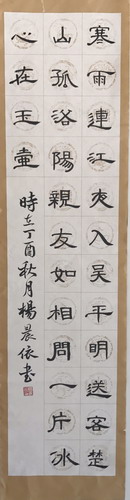 寒雨連江夜入吳平明送客楚
山孤洛陽親友如相問一片冰
心在玉壺
時在丁酉秋月楊晨依書